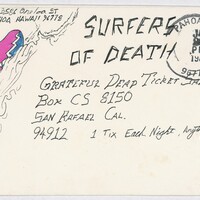 HOA HAWAII 96778
SURFERS
OF DEATH
PAHOA
GRATEFUL DEAD TICKET
BOX CS 8150
SAN RAFAEL CAL.
94912 1 TIX EACH NIGHT,